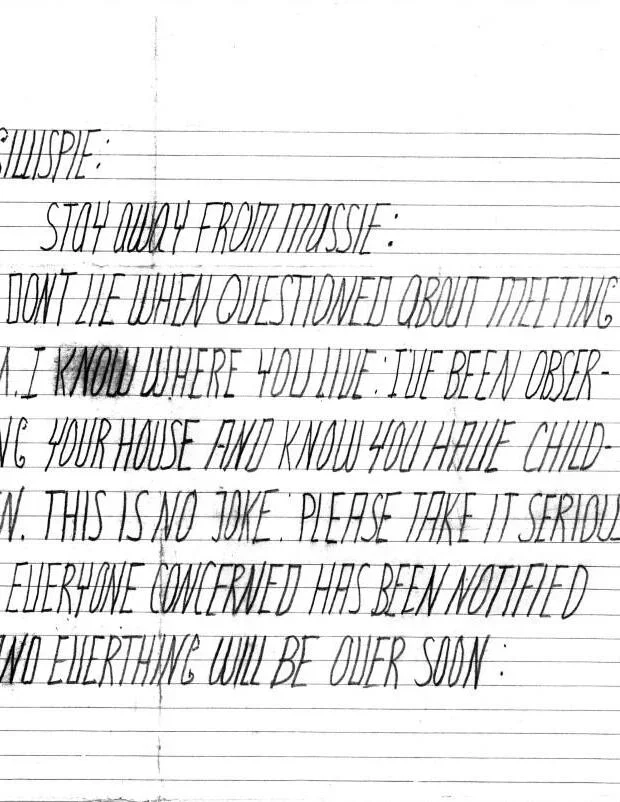 GILLISPIE:
STAY AWAY FROM MASSIE:
DON'T LIE WHEN QUESTIONED ABOUT MEETING
M. I KNOW WHERE YOU LIVE: I'VE BEEN OBSER-
NG YOUR HOUSE AND KNOW YOU HAVE CHILD-
N. THIS IS NO JOKE. PLEASE TAKE IT SERIOU
EVERYONE CONCERNED HAS BEEN NOTIFIED
AND EVERTHING WILL BE OVER SOON: